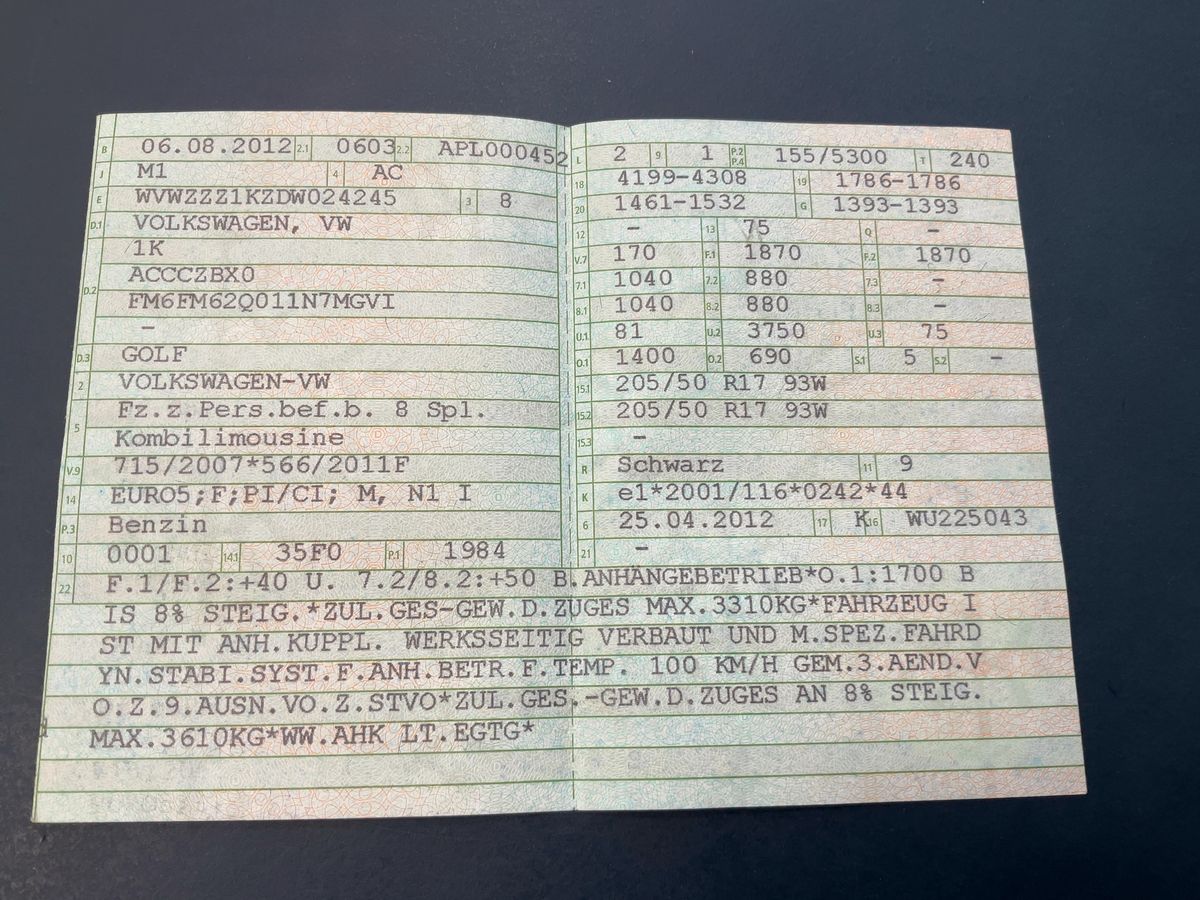 B 06.08.2012 2.1 0603 2.2 APL000452
J M1 4 AC
E WVWZZZ1KZDW024245 3 8
D.1 VOLKSWAGEN, VW
1K
D.2 ACCCZBX0
FM6FM62Q011N7MGVI
–
D.3 GOLF
2 VOLKSWAGEN-VW
5 Fz.z.Pers.bef.b. 8 Spl.
Kombilimousine
V.9 715/2007*566/2011F
14 EURO5;F;PI/CI; M, N1 I
P.3 Benzin
10 0001 14.1 35F0 P.1 1984
L 2 9 1 P.2 P.4 155/5300 T 240
18 4199-4308 19 1786-1786
20 1461-1532 G 1393-1393
12 – 13 75 Q –
V.7 170 F.1 1870 F.2 1870
7.1 1040 7.2 880 7.3 –
8.1 1040 8.2 880 8.3 –
U.1 81 U.2 3750 U.3 75
O.1 1400 O.2 690 S.1 5 S.2 –
15.1 205/50 R17 93W
15.2 205/50 R17 93W
15.3 –
R Schwarz 11 9
K e1*2001/116*0242*44
6 25.04.2012 17 K 16 WU225043
21 –
22 F.1/F.2:+40 U. 7.2/8.2:+50 B.ANHÄNGEBETRIEB*O.1:1700 B
IS 8% STEIG.*ZUL.GES-GEW.D.ZUGES MAX.3310KG*FAHRZEUG I
ST MIT ANH.KUPPL. WERKSSEITIG VERBAUT UND M.SPEZ.FAHRD
YN.STABI.SYST.F.ANH.BETR.F.TEMP. 100 KM/H GEM.3.AEND.V
O.Z.9.AUSN.VO.Z.STVO*ZUL.GES.-GEW.D.ZUGES AN 8% STEIG.
MAX.3610KG*WW.AHK LT.EGTG*